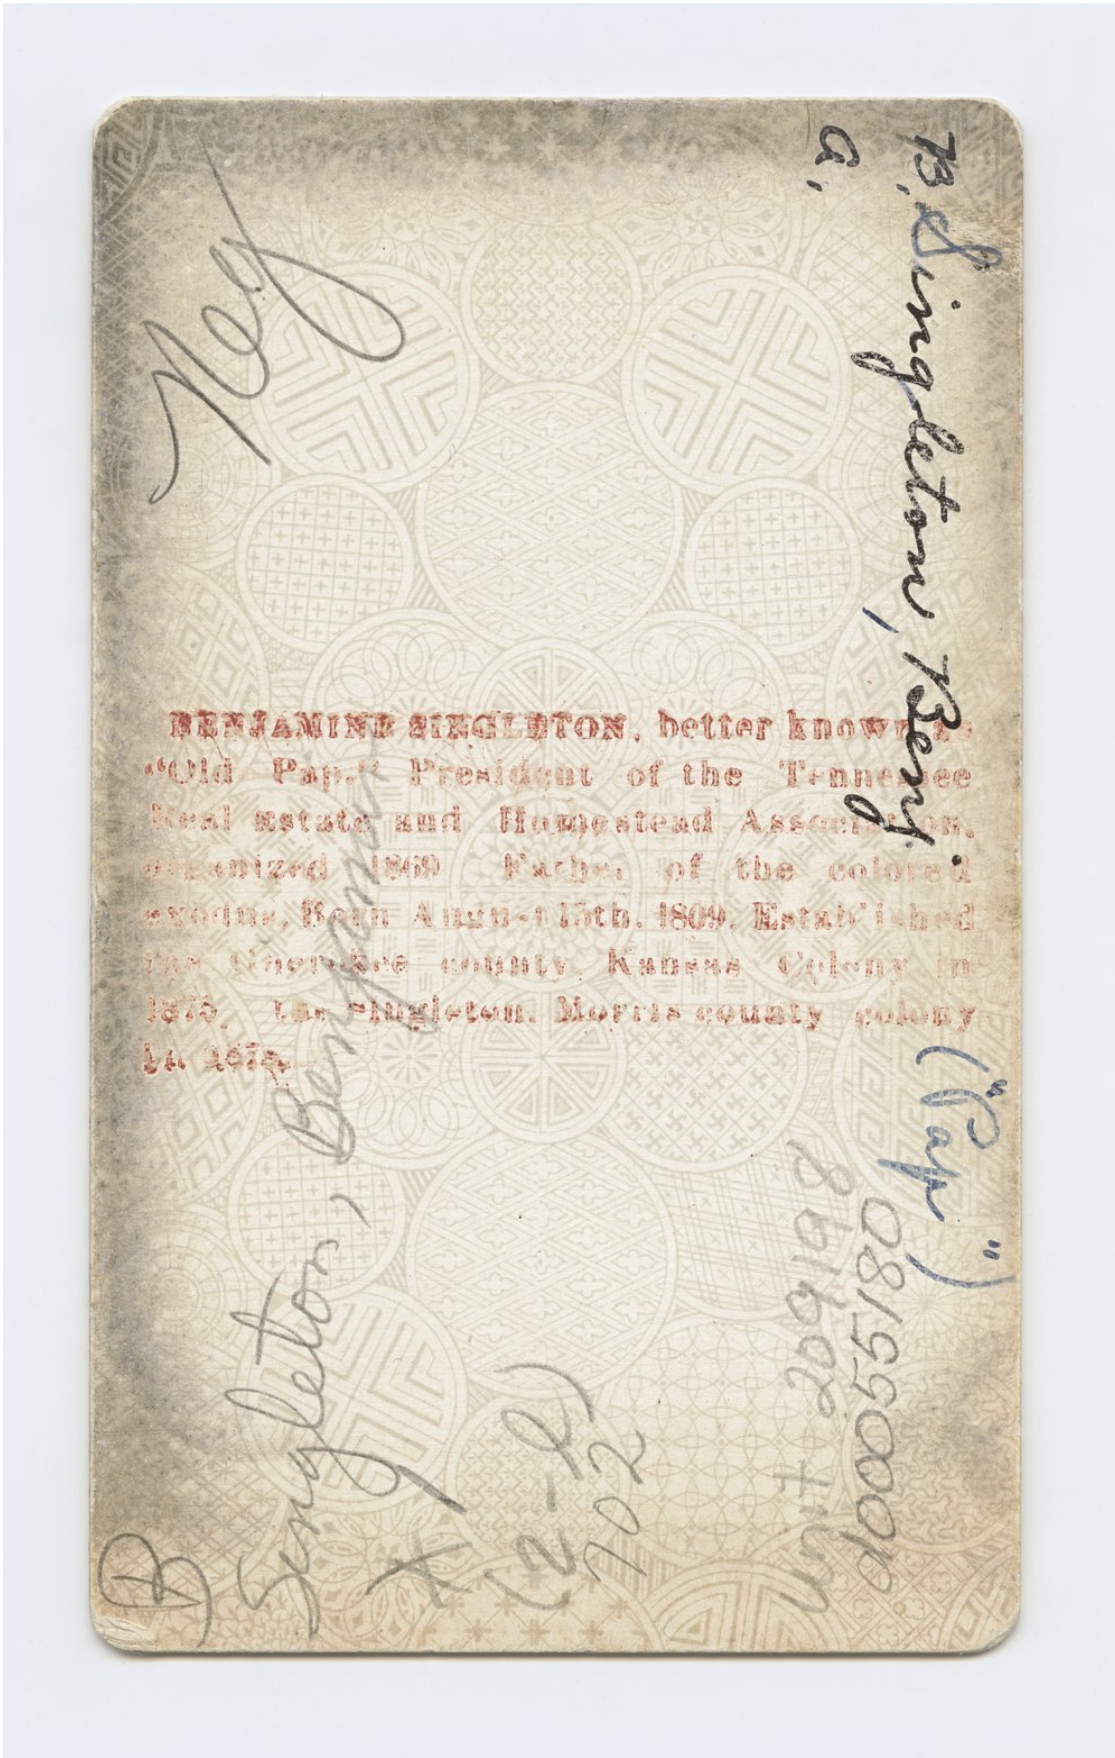 BENJAMINE SINGLETON, better known as
"Old Pap." President of the Tennessee
Real Estate and Homestead Association,
organized 1869 Father of the colored
exodus, Born August 15th, 1809. Established
the Cherokee county, Kansas Colony in
1875, the Singleton, Morris county colony
in
B. Singleton, Benj. ("Pap")
a.
Neg
Singleton, Benjamin
B
X
(2-l)
702
Unit 209198
d00055180